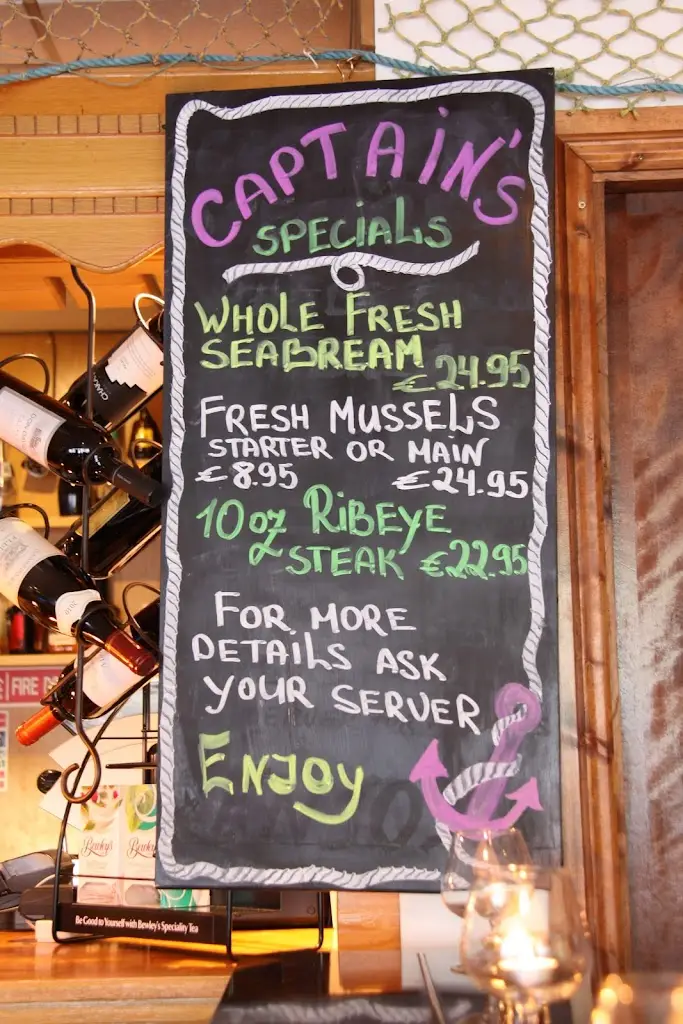 CAPTAIN'S
SPECIALS
WHOLE FRESH
SEABREAM
€24.95
FRESH MUSSELS
STARTER OR MAIN
€8.95 €24.95
10oz RIBEYE
STEAK €22.95
FOR MORE
DETAILS ASK
YOUR SERVER
ENJOY
FIRE
Bewley's
Be Good to Yourself with Bewley's Speciality Tea